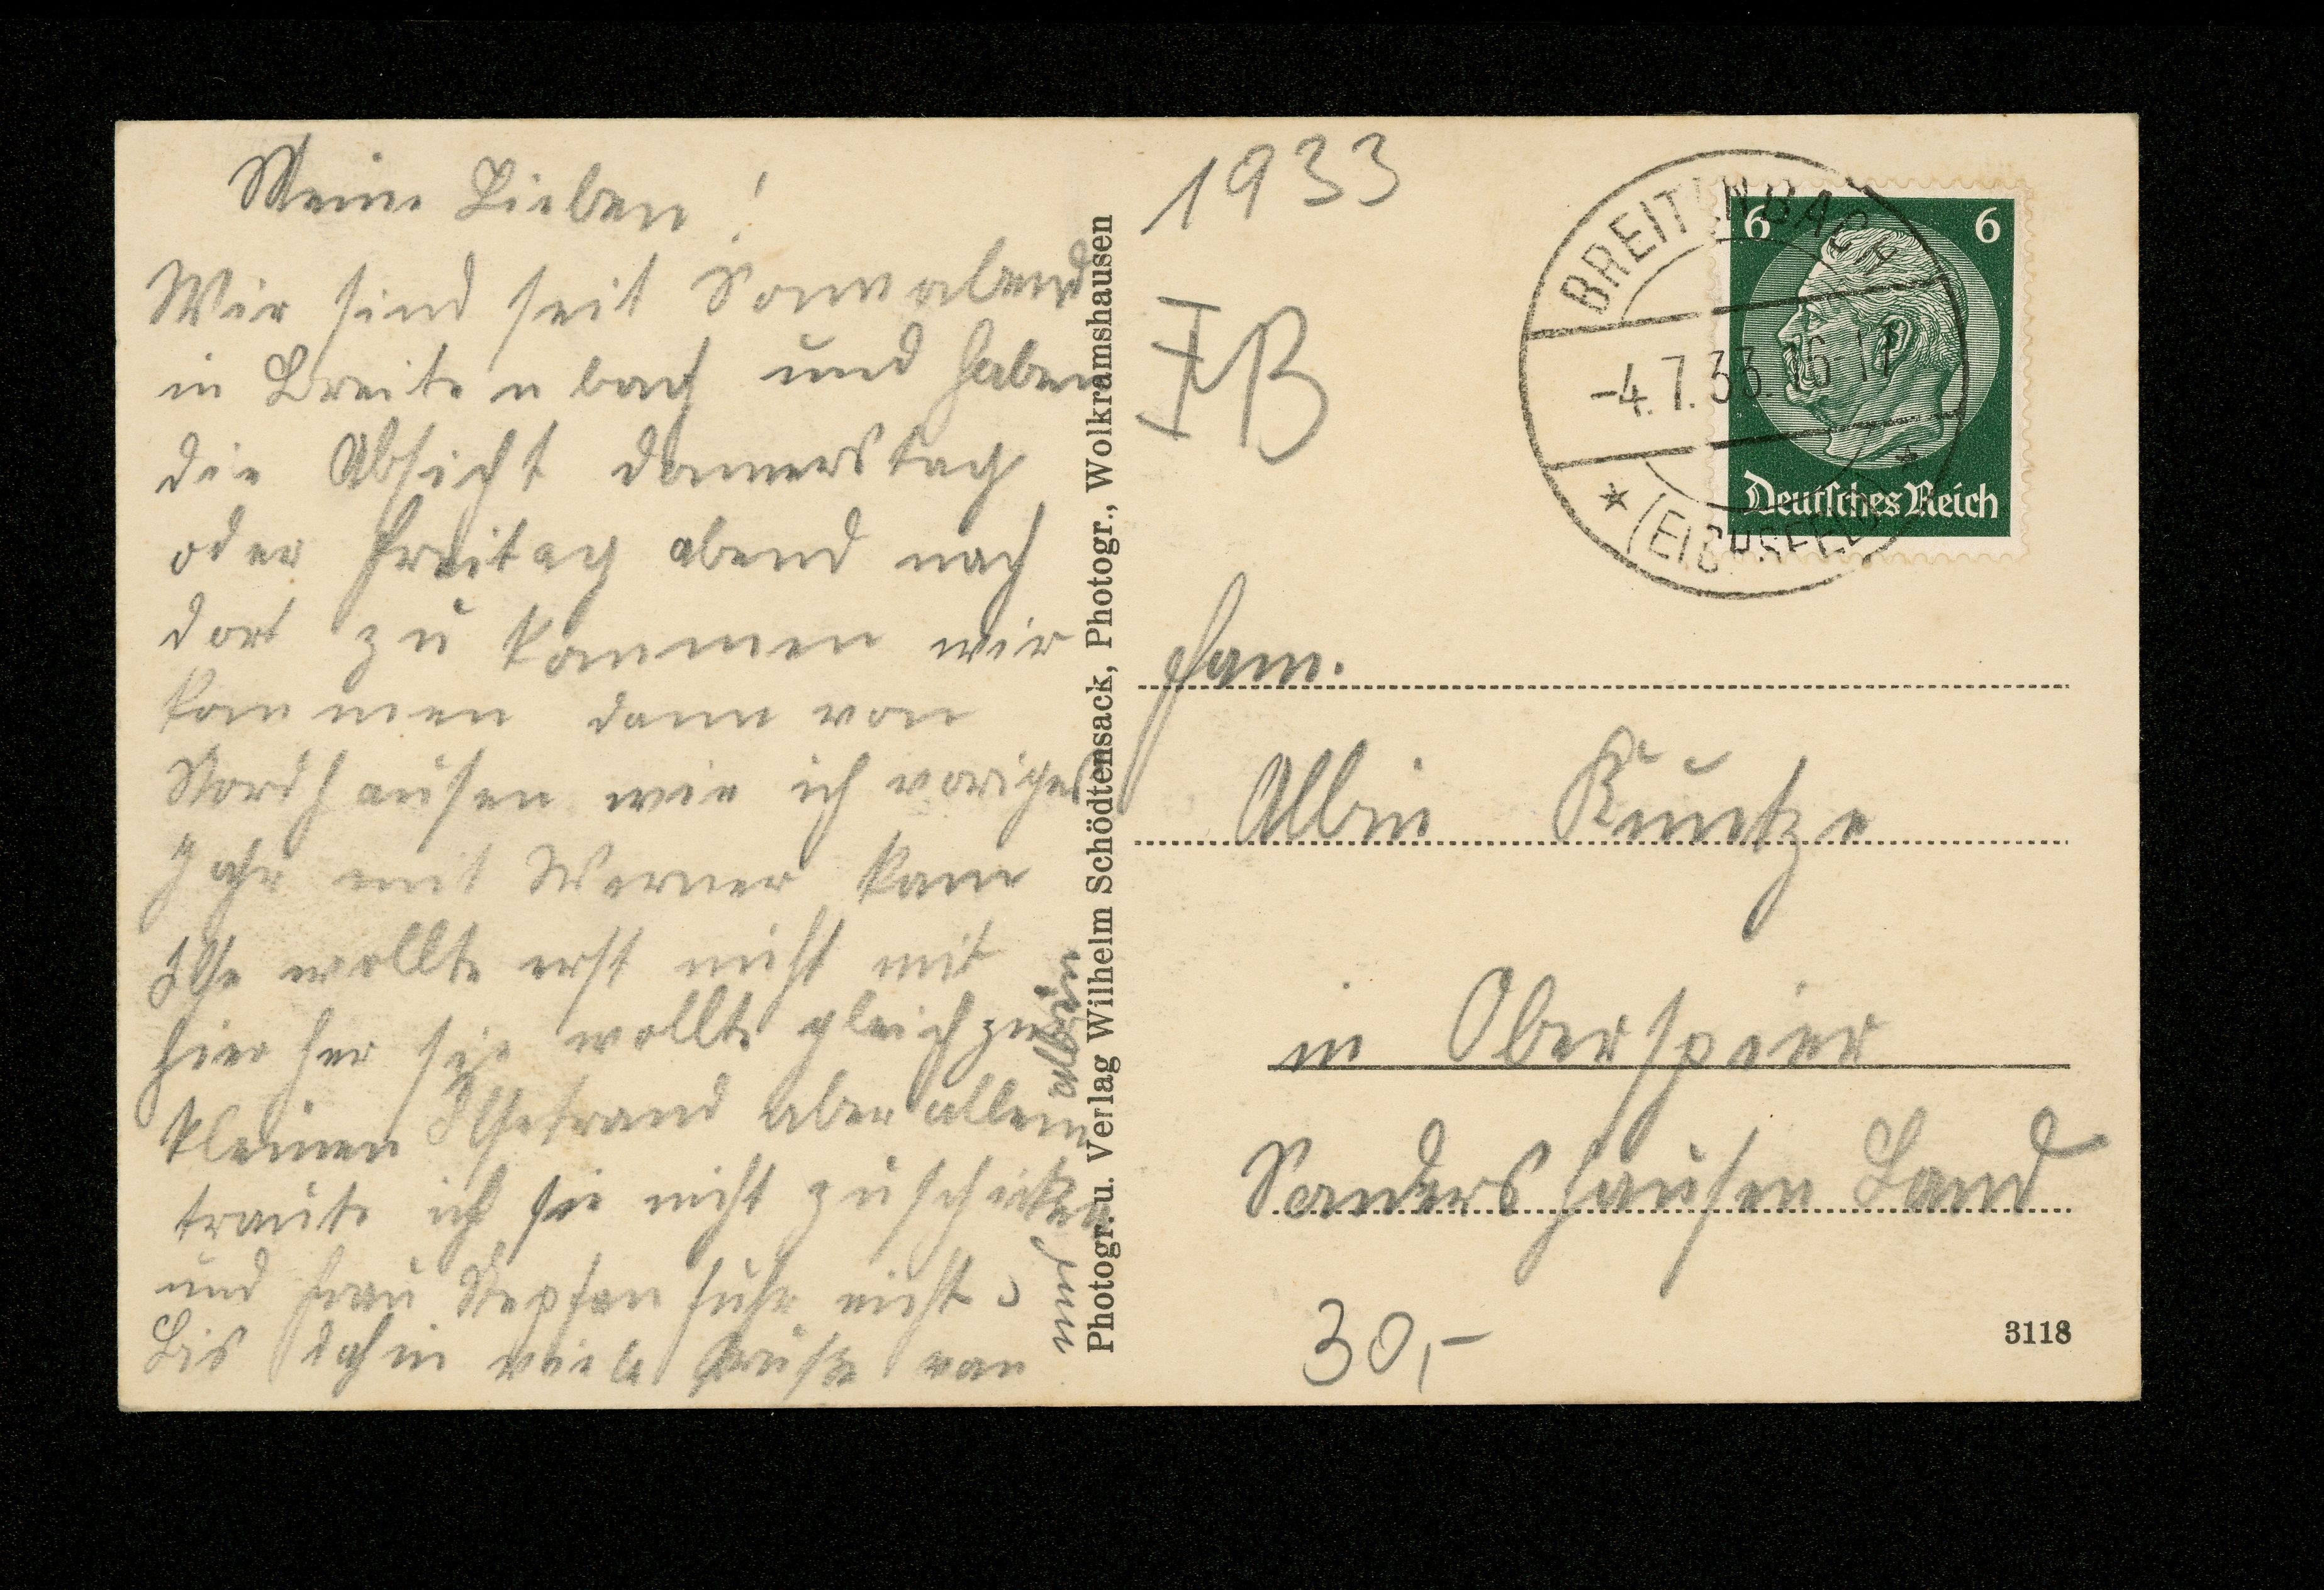 Meine Lieben!
Wir sind seit Sonnabend
in Breitenbach und haben
die Absicht donnerstag
oder Freitag abend nach
dort zu kommen wir
kommen dann von
Nordhausen wie ich voriges
Jahr mit Werner kam
Ilse wollte erst nicht mit
hier her sie wollte gleich zum
kleinen Ilsetrand aber allein
traute ich sie nicht zuschicken
und Frau fuhr nicht.
Bis dahin viele Grüße von
und
albin
Photogr. u. Verlag Wilhelm Schödtensack, Photogr., Wolkramshausen
1933
I B
BREITENBACH
-4.7.33.16-17
* (EICHSFELD) *
6 6
Deutsches Reich
Fam.
Albin Kuntze
in Oberspier
Sondershausen Land
30,-
3118